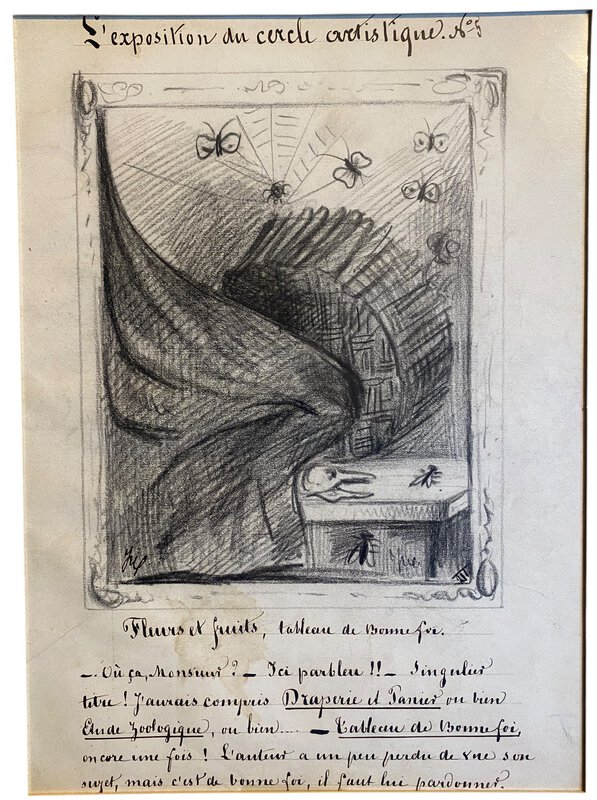 L'exposition du cercle artistique. N° 5
III
Fleurs et fruits, tableau de Bonnefoi.
— Où ça, Monsieur ? — Ici parbleu !! — Singulier
titre ! J'aurais compris Draperie et Panier ou bien
Etude Zoologique, ou bien ... — Tableau de Bonnefoi,
encore une fois ! L'auteur a un peu perdu de vue son
sujet, mais c'est de bonne foi, il faut lui pardonner.